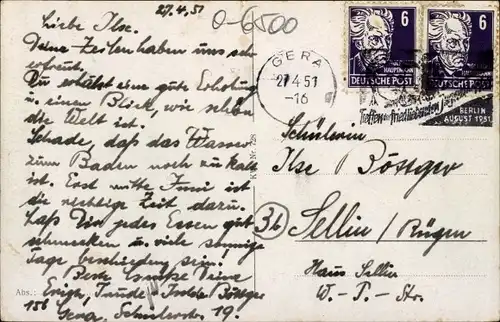 27.4.51
0-6500
Liebe Ilse.
Deine Zeilen haben uns sehr
erfreut.
Du erhältst eine gute Erholung
u. einen Blick, wie schön
die Welt ist.
Schade, daß das Wasser
zum Baden noch zu kalt
ist. Erst mitte Juni ist
die richtige Zeit dazu.
Laß Dir jedes Essen gut
schmecken u. viele sonnige
Tage beschieden sein!
Beste Grüße Deine
Trude Isolde Böttger
Abs.:
Gera, 19.
GERA
27.4.51
-16
6
6
HAUPTMANN
DEUTSCHE POST
DEUTSCHE POST
BERLIN
AUGUST 1951
Schülerin
Ilse Böttger
3b
Sellin / Rügen
Haus Sellin
W.-P.-Str.